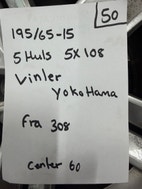 50
195/65-15
5 Huls 5x108
Vinler
Yokohama
Fra 308
center 60